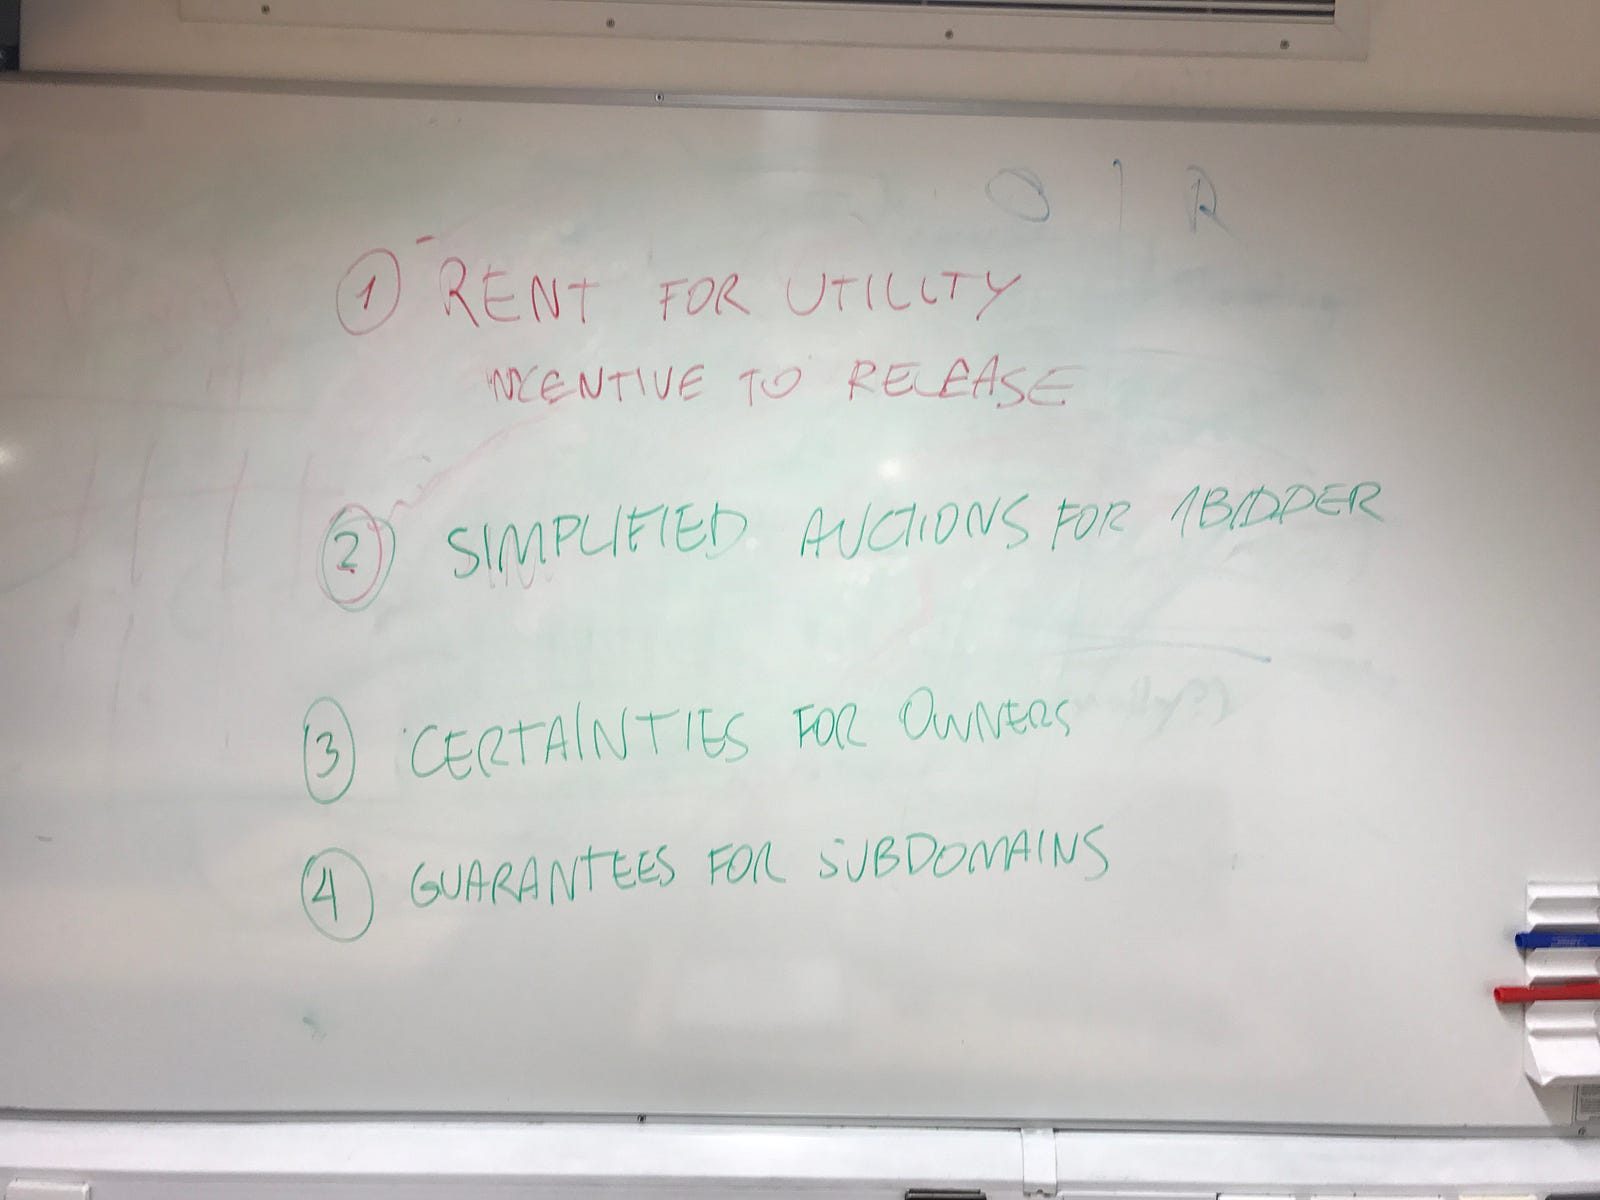 O | R
① RENT FOR UTILITY
INCENTIVE TO RELEASE
② SIMPLIFIED AUCTIONS FOR 1 BIDDER
③ CERTAINTIES FOR OWNERS
④ GUARANTEES FOR SUBDOMAINS